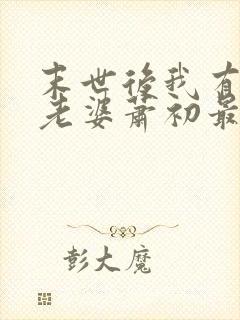 末世後我有
老婆蕭初最
彭大魔